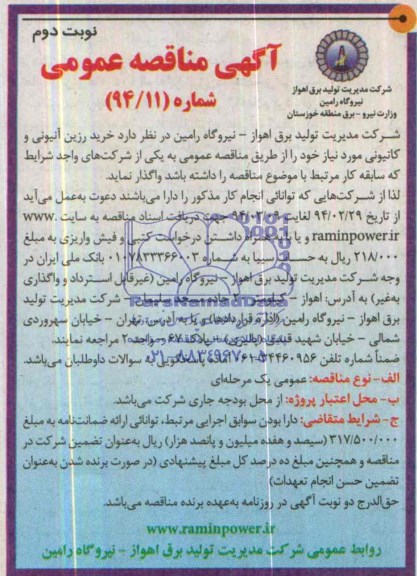 نوبت دوم
آگهی مناقصه عمومی
شماره (۹۴/۱۱)
شرکت مدیریت تولید برق اهواز
نیروگاه رامین
وزارت نیرو - برق منطقه خوزستان
شرکت مدیریت تولید برق اهواز - نیروگاه رامین در نظر دارد خرید رزین آنیونی و
کاتیونی مورد نیاز خود را از طریق مناقصه عمومی به یکی از شرکت‌های واجد شرایط
که سابقه کار مرتبط با موضوع مناقصه را داشته باشد واگذار نماید.
لذا از شرکت‌هایی که توانائی انجام کار مذکور را دارا می‌باشند دعوت به‌عمل می‌آید
از تاریخ ۹۴/۰۲/۲۹ لغایت ۹۴/۰۳/۰۹ جهت دریافت اسناد مناقصه به سایت www.
raminpower.ir و یا با به‌همراه داشتن درخواست کتبی و فیش واریزی به مبلغ
۲۱۸/۰۰۰ ریال به حساب سیبا به شماره ۰۱۰۷۸۳۳۳۶۶۰۰۳ بانک ملی ایران در
وجه شرکت مدیریت تولید برق اهواز - نیروگاه رامین (غیرقابل استرداد و واگذاری
به‌غیر) به آدرس: اهواز - کیلومتر جاده مسجد سلیمان - شرکت مدیریت تولید
برق اهواز - نیروگاه رامین (اداره قراردادها) و یا به آدرس: تهران - خیابان سهروردی
شمالی - خیابان شهید قندی - پلاک ۶۷ - واحد ۲ مراجعه نمایند.
ضمناً شماره تلفن ۳۴۴۶۰۹۵۶-۰۶۱ آماده پاسخگویی به سوالات داوطلبان می‌باشد.
الف - نوع مناقصه: عمومی یک مرحله‌ای
ب - محل اعتبار پروژه: از محل بودجه جاری شرکت می‌باشد.
ج - شرایط متقاضی: دارا بودن سوابق اجرایی مرتبط، توانائی ارائه ضمانت‌نامه به مبلغ
۳۱۷/۵۰۰/۰۰۰ (سیصد و هفده میلیون و پانصد هزار) ریال به‌عنوان تضمین شرکت در
مناقصه و همچنین مبلغ ده درصد کل مبلغ پیشنهادی (در صورت برنده شدن به‌عنوان
تضمین حسن انجام تعهدات)
حق‌الدرج دو نوبت آگهی در روزنامه به‌عهده برنده مناقصه می‌باشد.
www.raminpower.ir
روابط عمومی شرکت مدیریت تولید برق اهواز - نیروگاه رامین